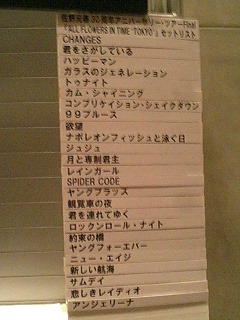 佐野元春 30周年アニバーサリー・ツアーFinal
『ALL FLOWERS IN TIME TOKYO』セットリスト
CHANGES
君をさがしている
ハッピーマン
ガラスのジェネレーション
トゥナイト
カム・シャイニング
コンプリケイション・シェイクダウン
99ブルース
欲望
ナポレオンフィッシュと泳ぐ日
ジュジュ
月と専制君主
レインガール
SPIDER CODE
ヤングブラッズ
観覧車の夜
君を連れてゆく
ロックンロール・ナイト
約束の橋
ヤングフォーエバー
ニュー・エイジ
新しい航海
サムデイ
悲しきレイディオ
アンジェリーナ